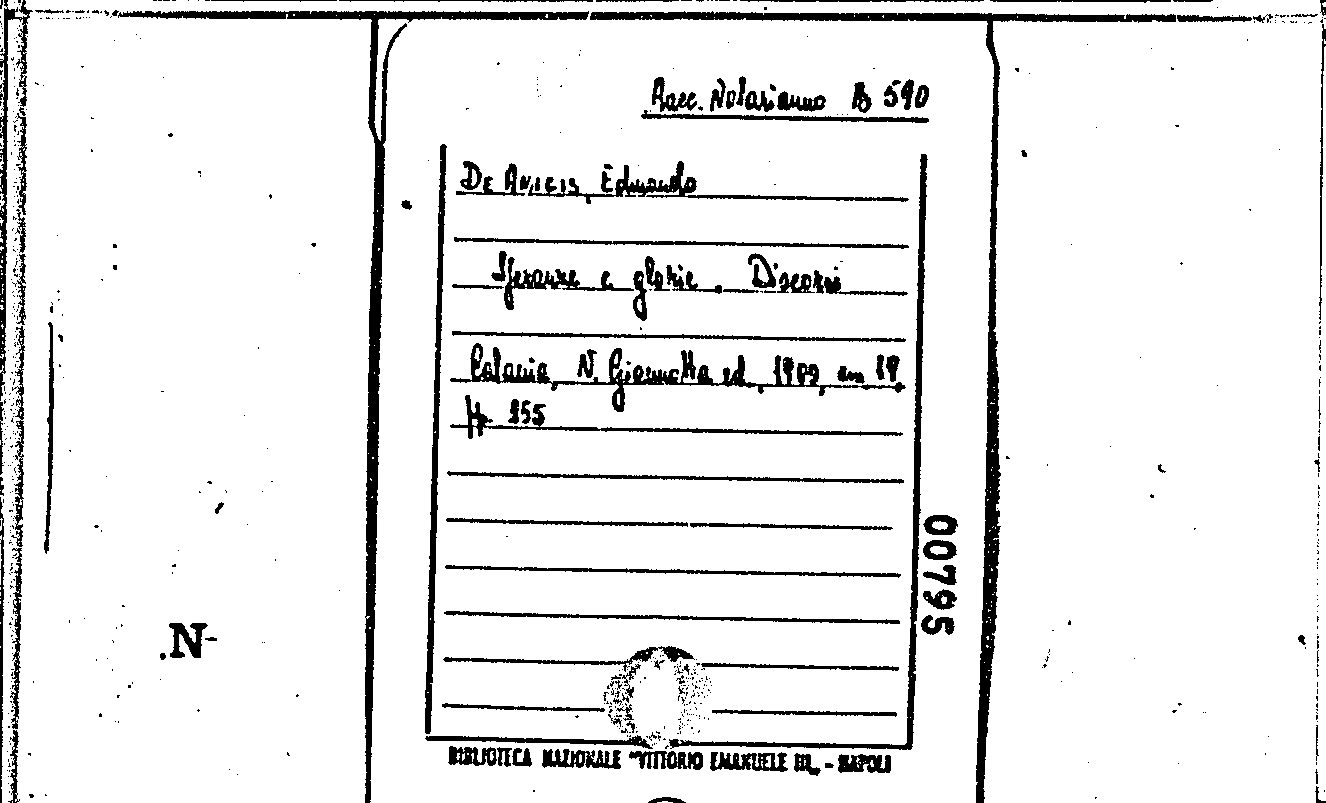 Racc. Notarianno B 590
De Amicis, Edmondo
Speranze e glorie. Discorsi
Catania, N. Giannotta ed., 1909, in 19.
pp 255
00795
.N-
BIBLIOTECA NAZIONALE "VITTORIO EMANUELE III„ - NAPOLI